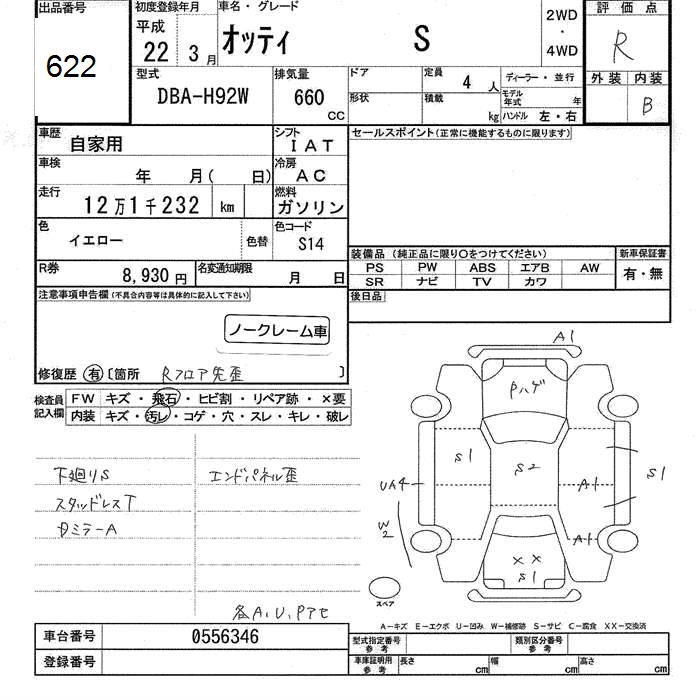 出品番号
622
初度登録年月
平成
22 3月
車名・グレード
オッティ S
2WD
・
4WD
評価点
R
外装 内装
B
型式
DBA-H92W
排気量
660
CC
ドア
形状
定員
4 人
積載
kg
ディーラー・並行
モデル年式 年
ハンドル 左・右
車歴
自家用
シフト
IAT
セールスポイント(正常に機能するものに限ります)
車検
年 月( 日)
冷房
AC
走行
12万1千232 km
燃料
ガソリン
色
イエロー
色替
色コード
S14
装備品 (純正品に限り○をつけてください)
PS PW ABS エアB AW
SR ナビ TV カワ
新車保証書
有・無
R券
8,930円
名変通知期限
月 日
後日品
注意事項申告欄(不具合内容等は具体的に記入して下さい)
ノークレーム車
修復歴 有 〔箇所 Rフロア先歪 〕
検査員
記入欄
FW キズ・飛石・ヒビ割・リペア跡・×要
内装 キズ・汚レ・コゲ・穴・スレ・キレ・破レ
下廻りS
スタッドレスT
エンドパネル歪
各A、U、Pアセ
A1
Pハゲ
S1
S2
UA4
A1
S1
W2
A1
××
S1
スペア
A-キズ E-エクボ U-凹み W-補修跡 S-サビ C-腐食 XX-交換済
車台番号
0556346
登録番号
型式指定番号
参考
類別区分番号
参考
車庫証明用
参考
長さ cm
幅 cm
高さ cm